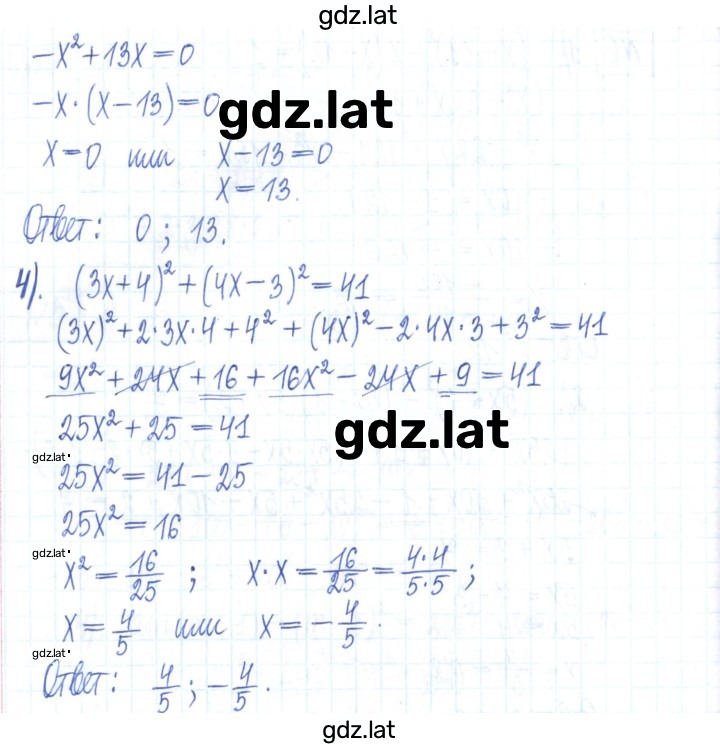 gdz.lat
-x² + 13x = 0
-x·(x - 13) = 0
gdz.lat
x = 0 или x - 13 = 0
x = 13.
Ответ: 0; 13.
4). (3x + 4)² + (4x - 3)² = 41
(3x)² + 2·3x·4 + 4² + (4x)² - 2·4x·3 + 3² = 41
9x² + 24x + 16 + 16x² - 24x + 9 = 41
25x² + 25 = 41
gdz.lat
gdz.lat
25x² = 41 - 25
25x² = 16
gdz.lat
x² = 16/25 ; x·x = 16/25 = 4·4/5·5 ;
x = 4/5 или x = -4/5.
gdz.lat
Ответ: 4/5; -4/5.
gdz.lat